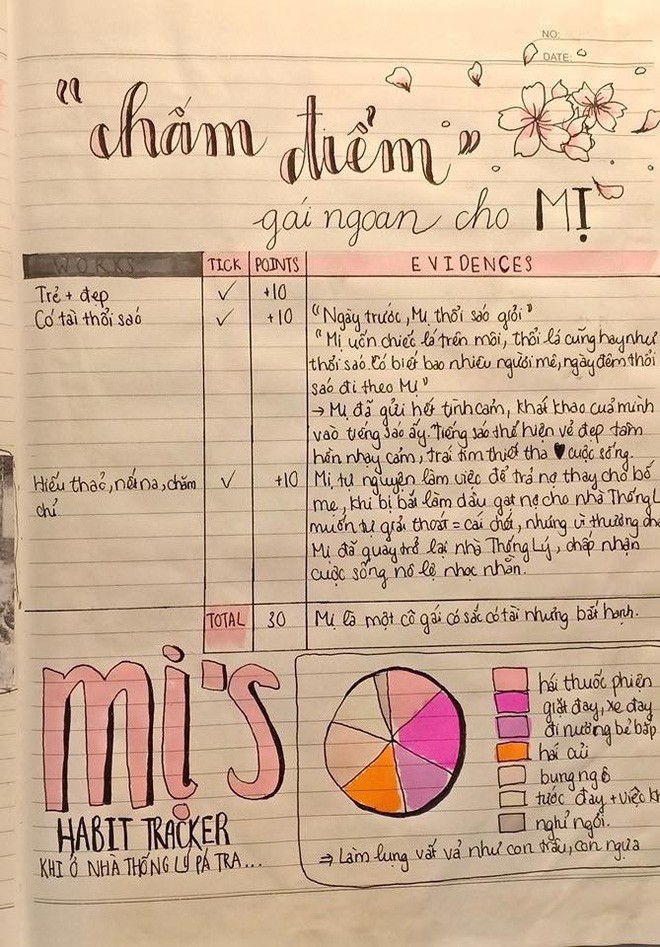 NO:
DATE:
"chấm điểm"
gái ngoan cho MỊ
WORKS TICK POINTS EVIDENCES
Trẻ + đẹp ✓ +10
Có tài thổi sáo ✓ +10 "Ngày trước, Mị thổi sáo giỏi"
"Mị uốn chiếc lá trên môi, thổi lá cũng hay như
thổi sáo. Có biết bao nhiêu người mê, ngày đêm thổi
sáo đi theo Mị"
→ Mị đã gửi hết tình cảm, khát khao của mình
vào tiếng sáo ấy. Tiếng sáo thể hiện vẻ đẹp tâm
hồn nhạy cảm, trái tim thiết tha ♥ cuộc sống.
Hiếu thảo, nết na, chăm ✓ +10 Mị tự nguyện làm việc để trả nợ thay cho bố
chỉ mẹ, khi bị bắt làm dâu gạt nợ cho nhà Thống L
muốn tự giải thoát = cái chết, nhưng vì thương
Mị đã quay trở lại nhà Thống Lý, chấp nhận
cuộc sống nô lệ nhọc nhằn.
TOTAL 30 Mị là một cô gái có sắc có tài nhưng bất hạnh.
Mị's
HABIT TRACKER
KHI Ở NHÀ THỐNG LÝ PÁ TRA...
hái thuốc phiện
giặt đay, xe đay
đi nương bẻ bắp
hái củi
bung ngô
tước đay + việc
nghỉ ngơi.
⇒ Làm lụng vất vả như con trâu, con ngựa